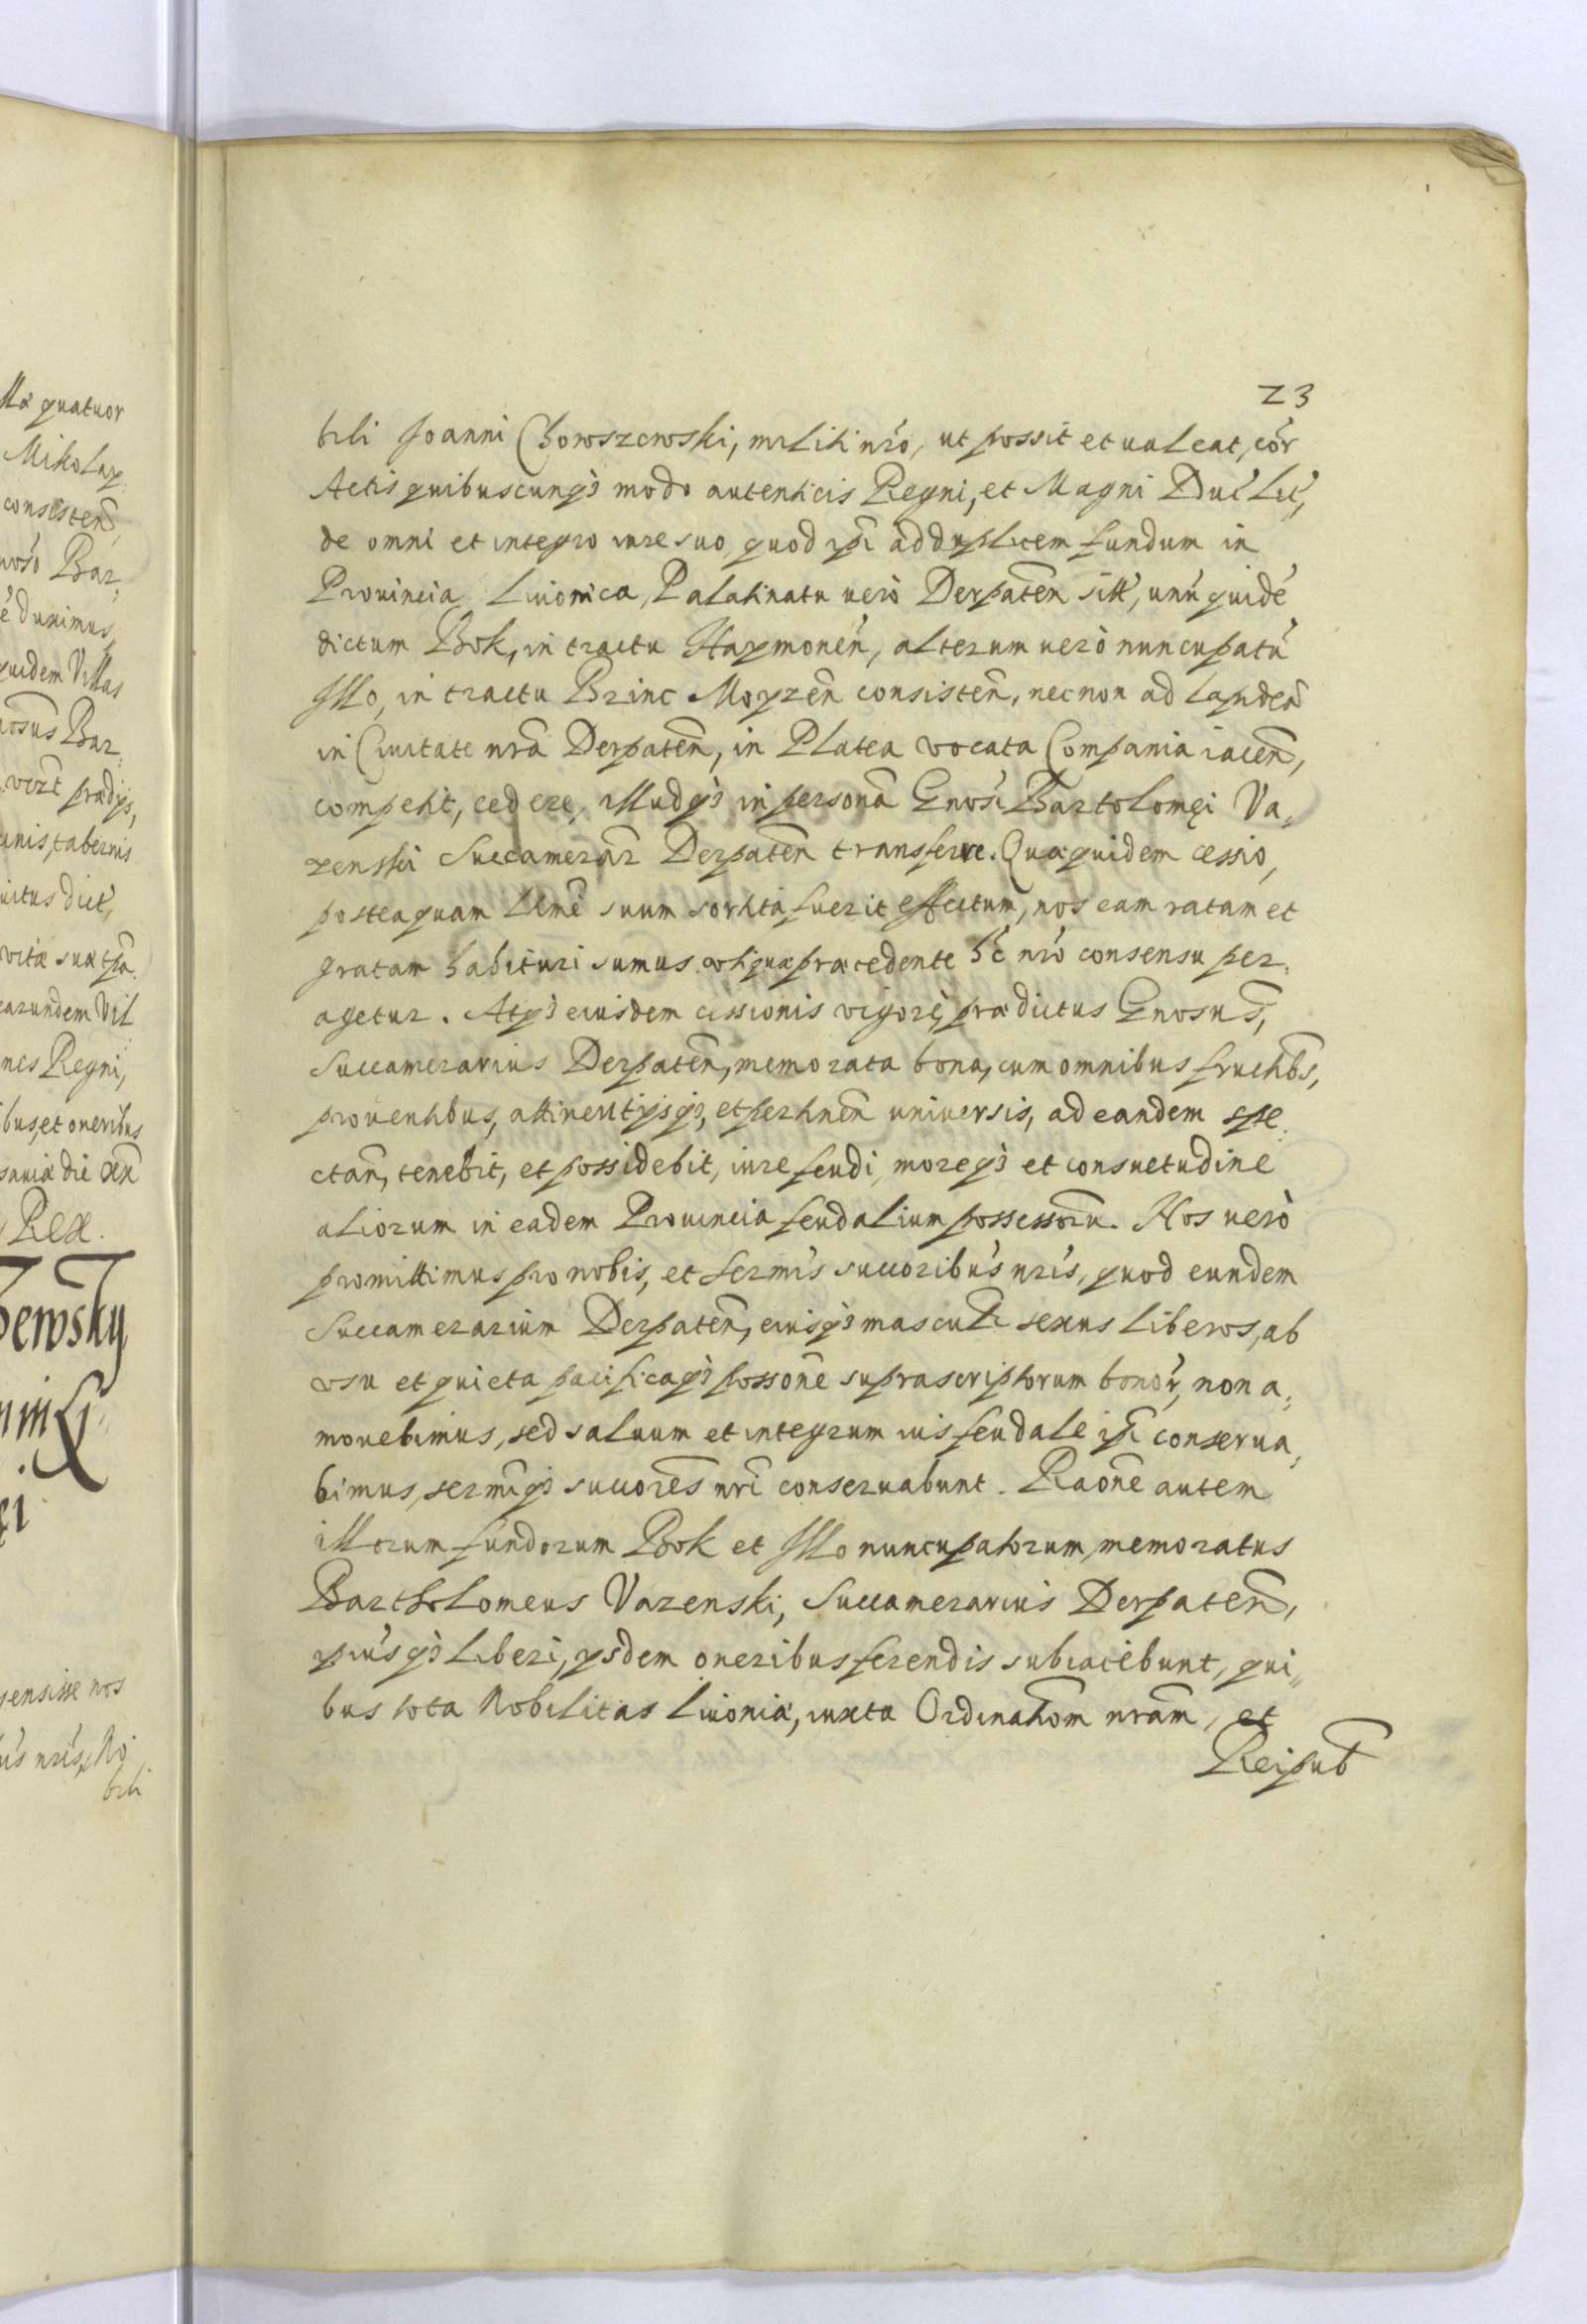 lla quatuor
Mikolay
consisten̄
noso Bar,
é duximus,
quidem Villas
nosus Bar
vizt prædijs,
anis, tabernis
vitæ suæ tpa.
earundem Vil
nes Regni,
ibus, et oneribus
saviæ die xx
Rex.
sensisse nos
bus nris, No
bili
23
bili Joanni Chowszewski, militi nrõ, ut possit et ualeat, cor̃
Actis quibuscunq̃ modo autenticis Regni, et Magni Duc̃ Lit̃,
de omni et integro iure suo, quod ipi ad duplicem fundum in
Prouincia Liuonica, Palatinatu uerò Derpaten̄ sitt̃, unũ quidẽ
dictum Bok, in tractu Haymonen̄, alterum uerò nuncupatũ
Illo, in tractu Brinc Moyzen̄ consisten̄, nec non ad lapideã
in Ciuitate nrã Derpaten̄, in Platea vocata Compania iacen̄,
competit, cedere, illudq̃ in personã Gnosi Bartolomęi Va,
zenski Succamerar̃ Derpaten̄ transferre. Quæquidem cessio,
posteaquam ltimẽ suum sortita fuerit effectum, nos eam ratam et
gratam habituri sumus, vtiquæ præcedente hc̃ nrõ consensu per,
agetur. Atq̃ eiusdem cessionis vigorẽ, prædictus Gnosus̃,
Succamerarius Derpaten̄, memorata bona, cum omnibus fructibs̃,
prouentibus, attinentijsq̃, et pertinen̄ uniuersis, ad eandem spe,
ctan̄, tenebit, et possidebit, iure feudi, moreq̃ et consuetudine
aliorum in eadem Prouincia feudalium possessorũ. Nos uerò
promittimus pro nobis, et Sermis̃ succoribus̃ nris̃, quod eundem
Succamerarium Derpaten̄, eiusq̃ masculi sexus liberos, ab
vsu et quieta pacificaq̃ possonẽ suprascriptorum bonor̃, non a,
mouebimus, sed saluum et integrum ius feudale ipi conserua,
bimus, sermiq̃ succores̃ nri conseruabunt. Raonẽ autem
illorum fundorum Bok et Illo nuncupatorum, memoratus
Bartholomeus Vazenski, Succamerarius Derpaten̄,
ipiusq̃ liberi, ysdem oneribus ferendis subiacebunt, qui,,
bus tota Nobilitas Liuoniæ, iuxta Ordinatiom̃ nram̃, et
Reipub̃